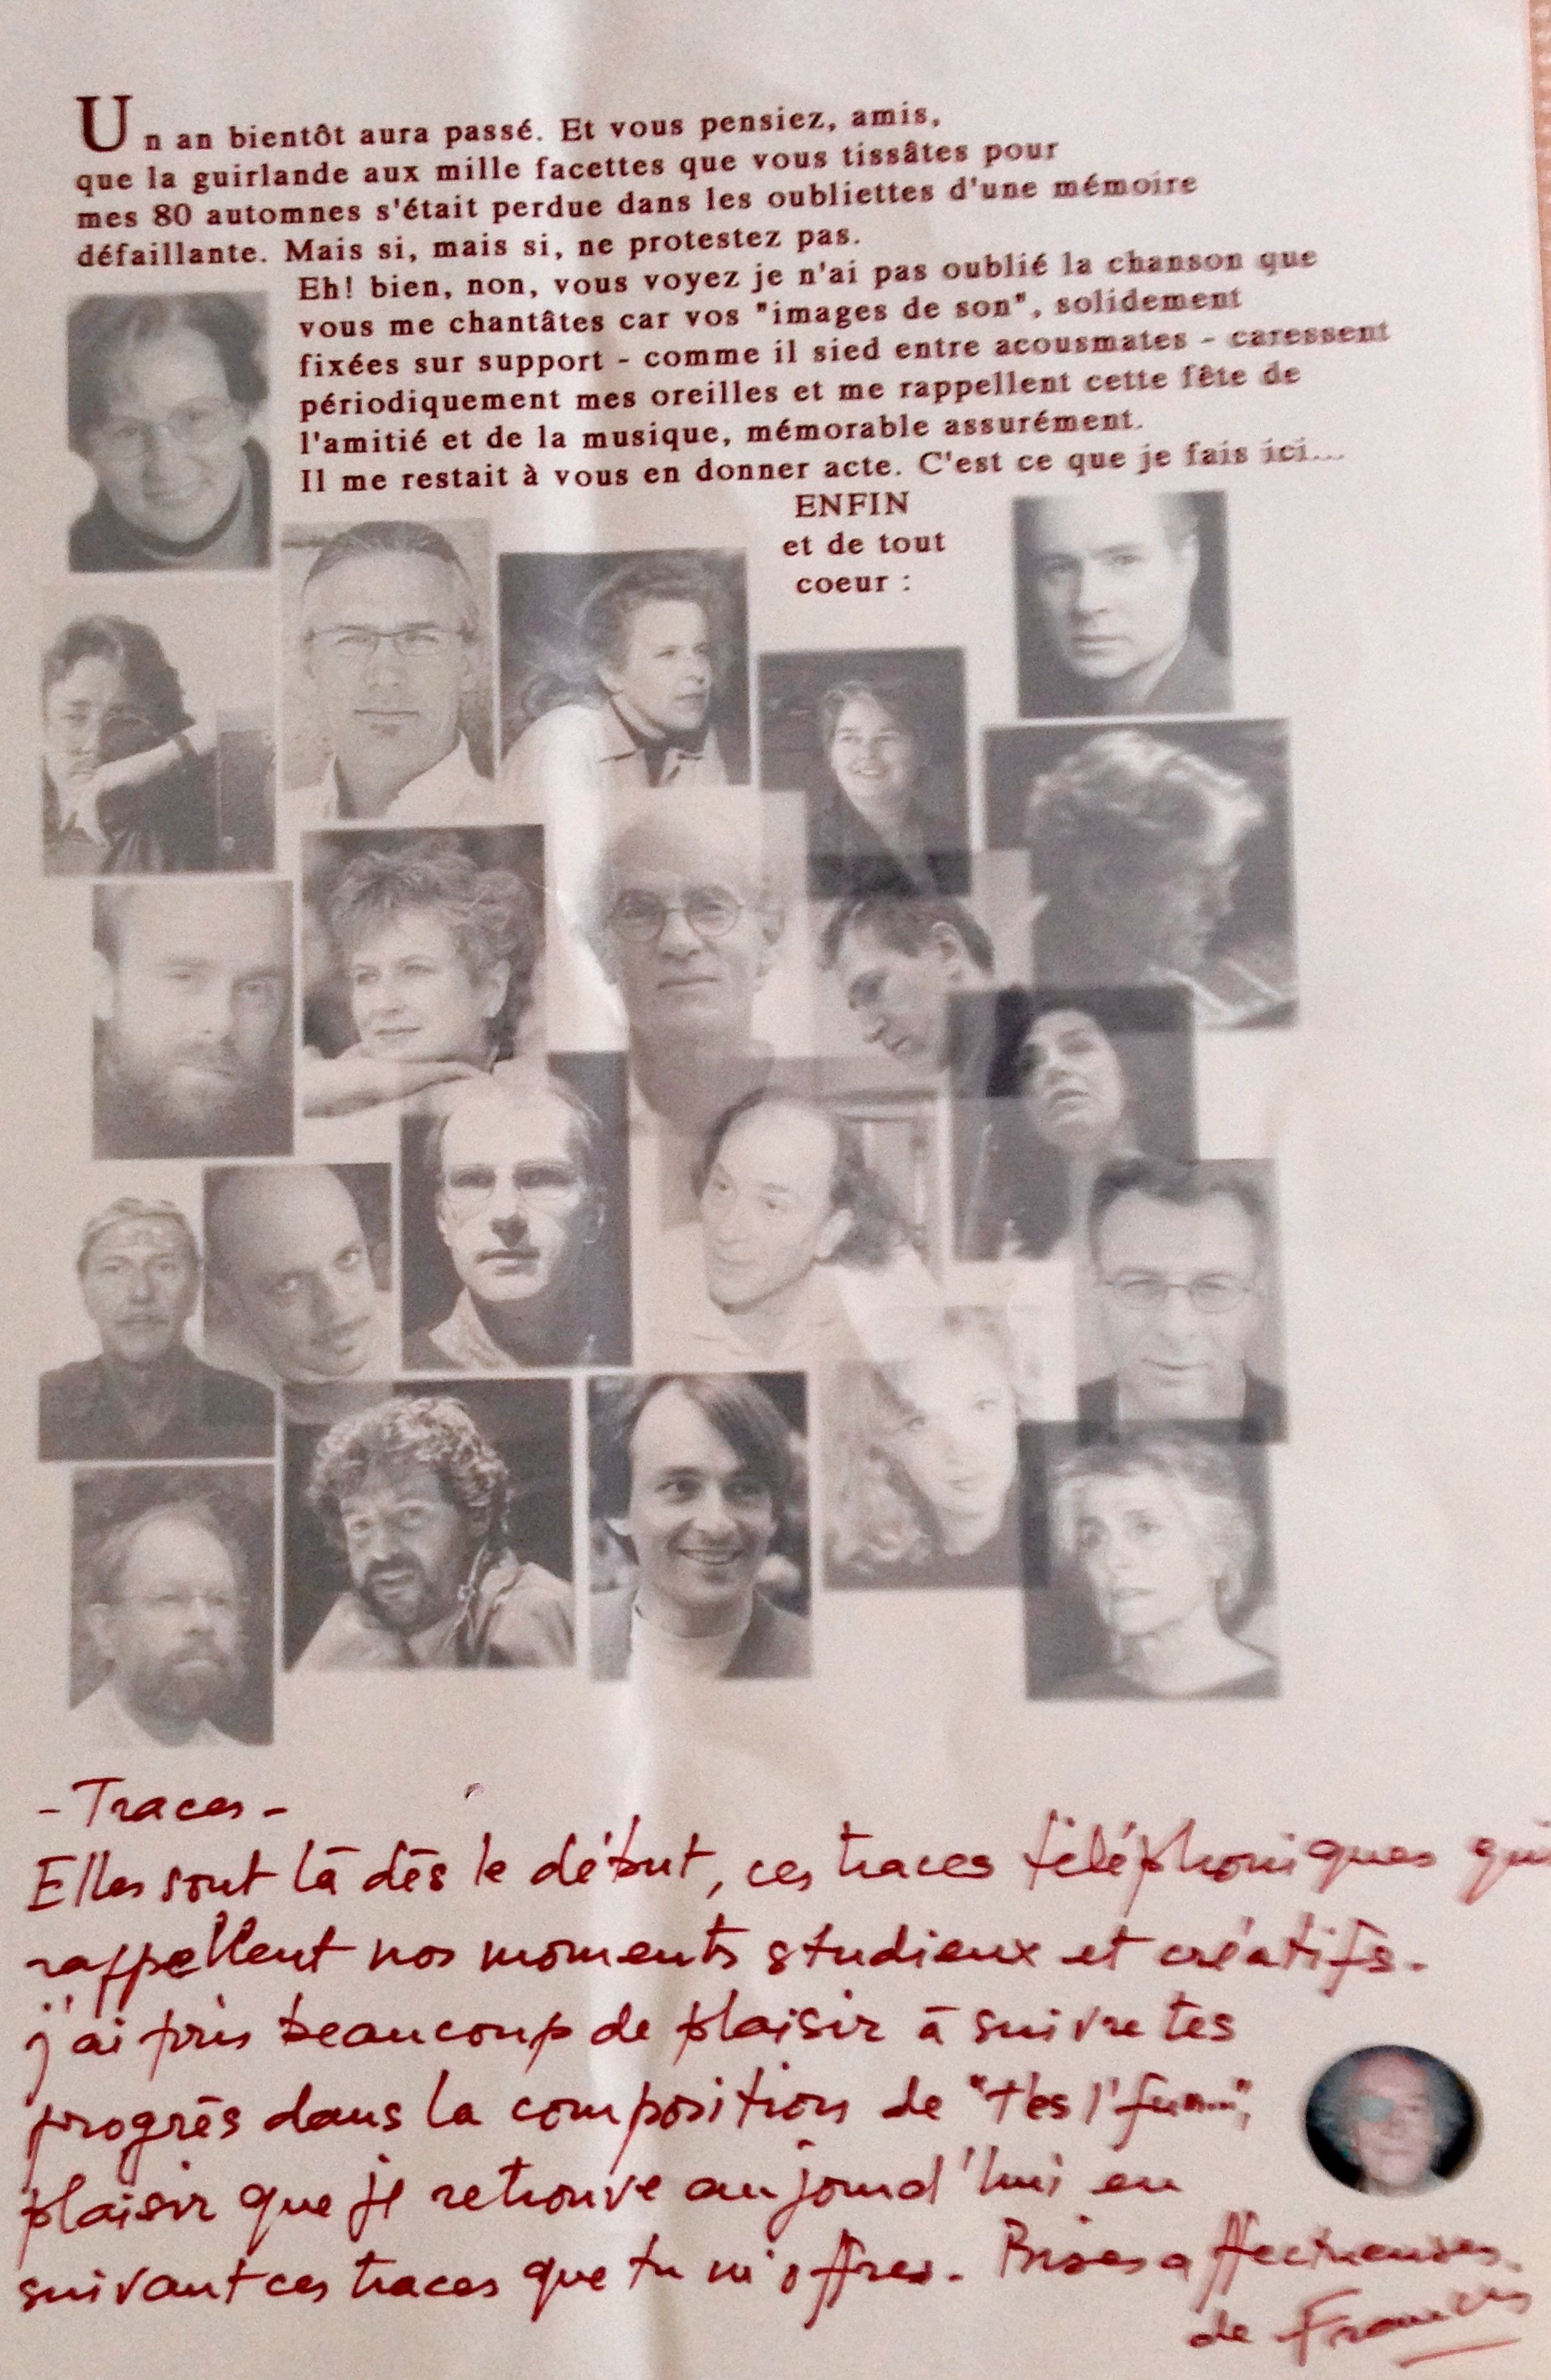 Un an bientôt aura passé. Et vous pensiez, amis,
que la guirlande aux mille facettes que vous tissâtes pour
mes 80 automnes s'était perdue dans les oubliettes d'une mémoire
défaillante. Mais si, mais si, ne protestez pas.
Eh! bien, non, vous voyez je n'ai pas oublié la chanson que
vous me chantâtes car vos "images de son", solidement
fixées sur support - comme il sied entre acousmates - caressent
périodiquement mes oreilles et me rappellent cette fête de
l'amitié et de la musique, mémorable assurément.
Il me restait à vous en donner acte. C'est ce que je fais ici...
ENFIN
et de tout
coeur :
- Traces -
Elles sont là dès le début, ces traces téléphoniques qui
rappellent nos moments studieux et créatifs.
j'ai pris beaucoup de plaisir à suivre tes
progrès dans la composition de "t'es l'fun...",
plaisir que je retrouve aujourd'hui en
suivant ces traces que tu m'offres. Bises affectueuses
de Francis